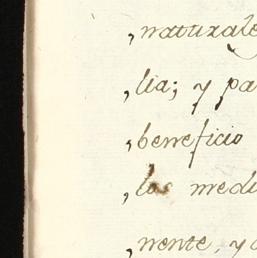 , naturale
, lia; y pa
, beneficio
, los medi
, mente, y